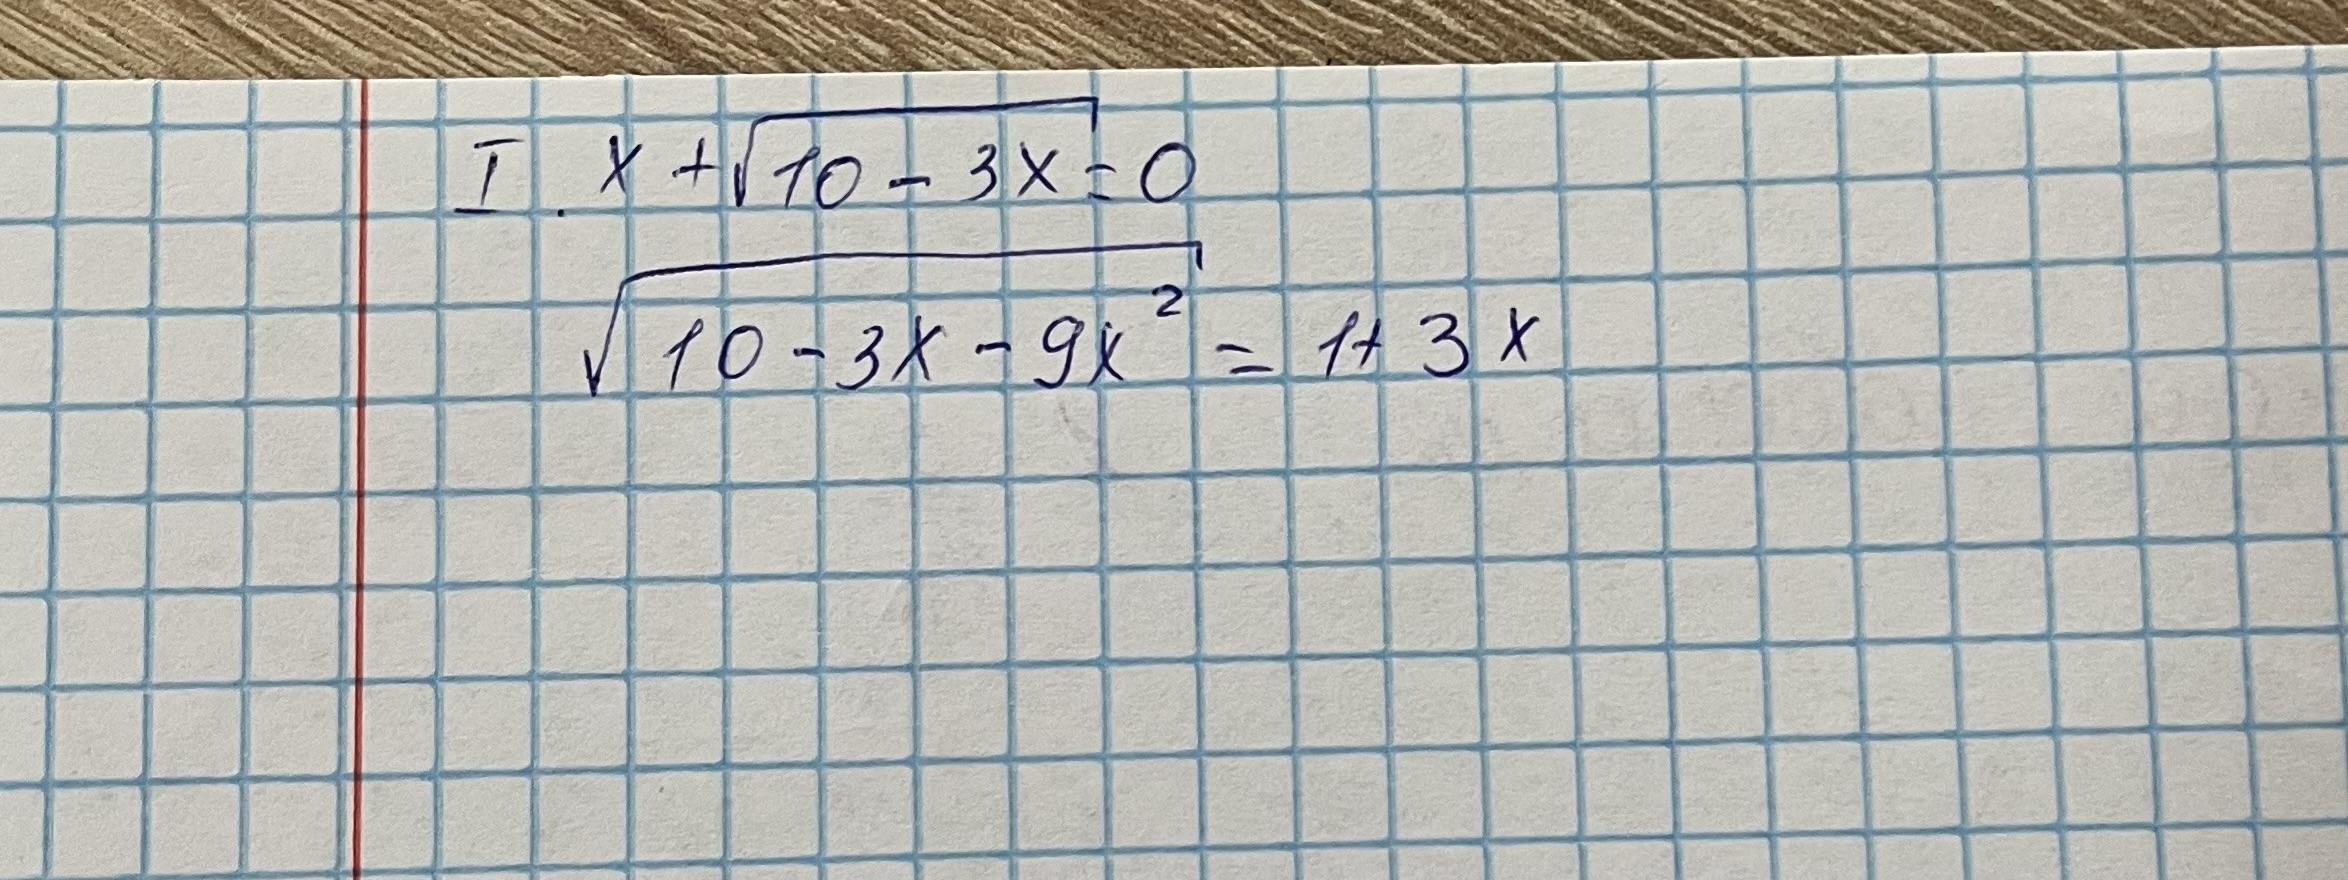 I. x + √10 - 3x = 0
√10 - 3x - 9x² = 1 + 3x